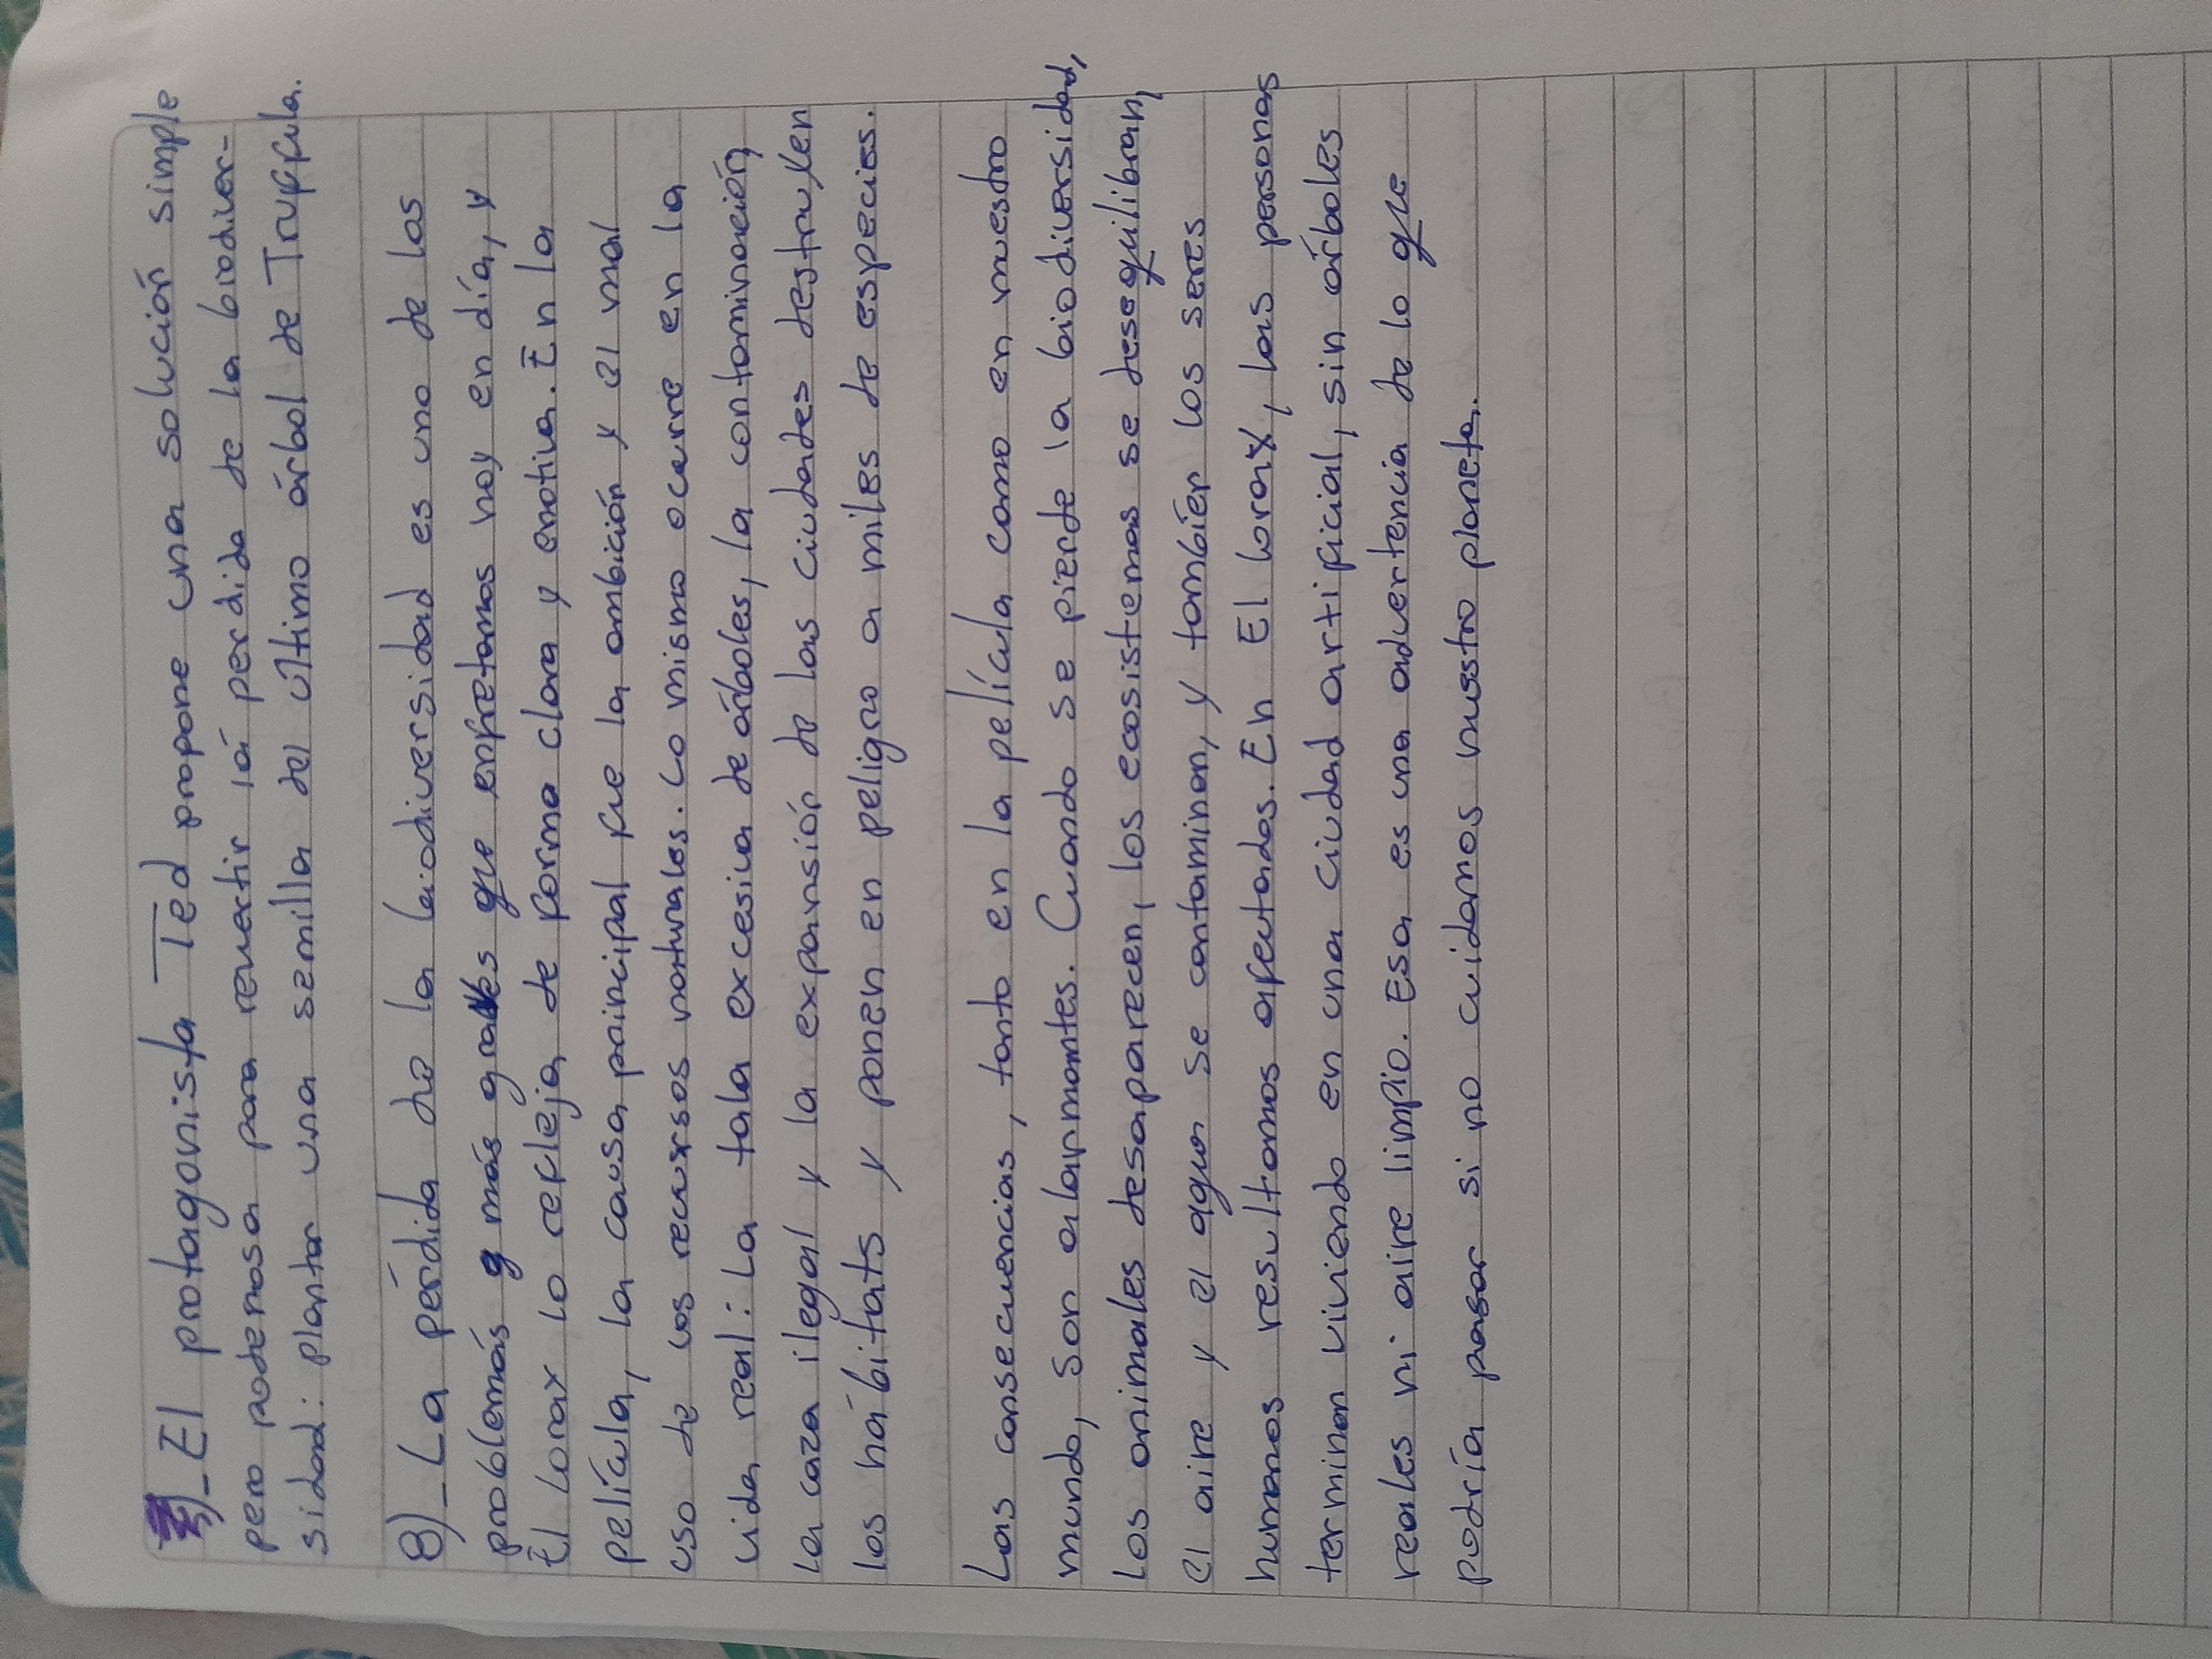 _El protagonista Ted propone una solución simple
pero poderosa para revertir lá perdida de la biodiver-
sidad: plantar una semilla del último árbol de Truffula.
8)_La pérdida de la biodiversidad es uno de los
problemás y más graves que enfretamos hoy en día, y
El Lorax lo refleja de forma clara y emotiva. En la
película, la causa principal fue la ambición y el mal
uso de los recursos naturales. Lo mismo ocurre en la
vida real: La tala excesiva de árboles, la contominación,
la caza ilegal y la expansión de las ciudades destruyen
los hábitats y ponen en peligro a miles de especies.
Las consecuencias, tanto en la película como en nuestro
mundo, son alarmantes. Cuando se pierde la biodiversidad,
los animales desaparecen, los ecosistemas se desequilibran,
el aire y el agua se contaminan, y también los seres
humanos resultamos afectados. En El lorax, las personas
terminan viviendo en una ciudad artificial, sin árboles
reales ni aire limpio. Esa es una advertencia de lo que
podría pasar si no cuidamos nuestro planeta.